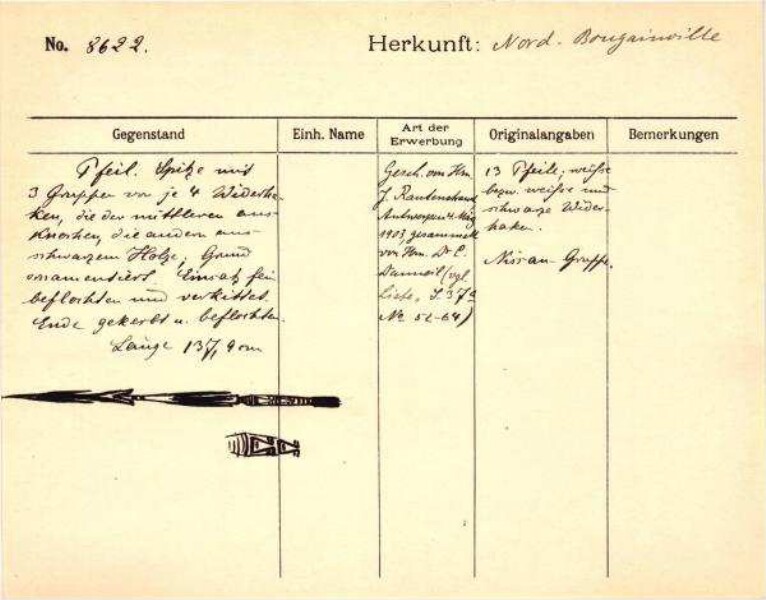 No. 8622.
Herkunft: Nord. Bougainville
Gegenstand
Einh. Name
Art der Erwerbung
Originalangaben
Bemerkungen
Pfeil. Spitze mit
3 Gruppen von je 4 Widerha-
ken, die der mittleren aus
Knochen, die andern aus
schwarzem Holze; Grund
ornamentiert. Einsatz fein
beflochten und verkittet.
Ende gekerbt u. beflochten.
Länge 137,9 cm
Gesch. von Hrn.
J. Rautenstrauch
Antwerpen 4. Mrz
1903, gesammelt
von Hrn. Dr E.
Danneil (vgl.
Liste, S. 37a
No 52-64)
13 Pfeile; weiße
bezw. weiße und
schwarze Wider-
haken.
Nissan-Gruppe.